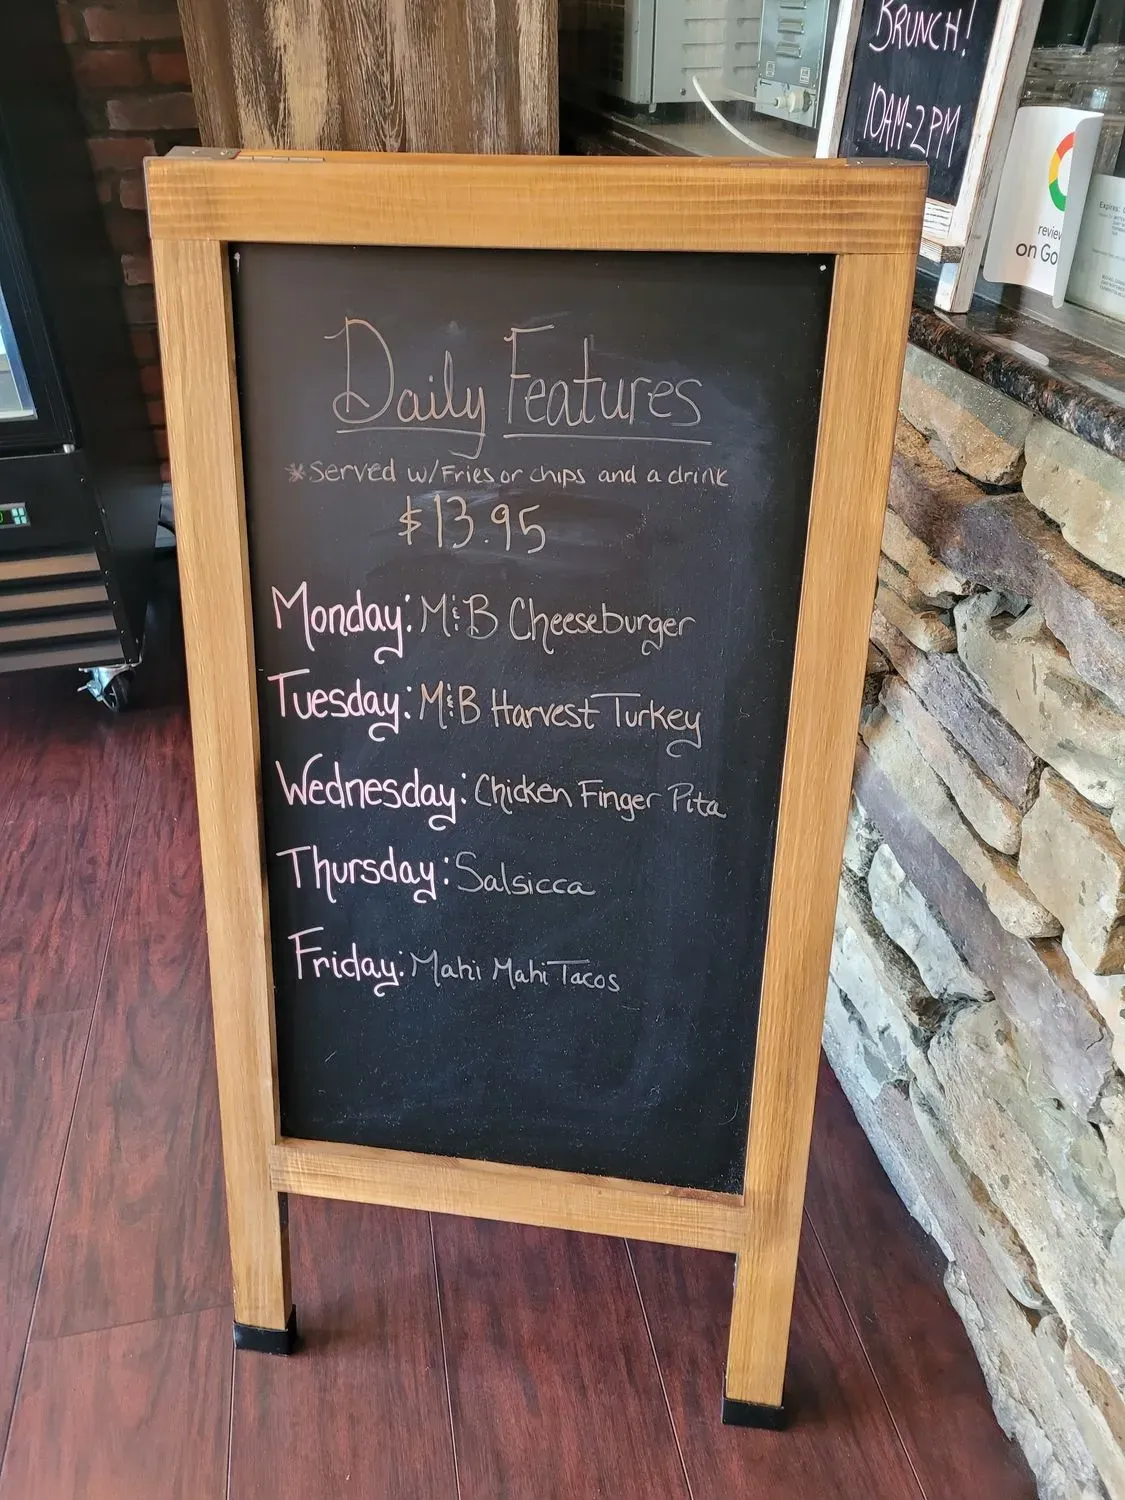 BRUNCH!
10AM-2PM
review
on Go
Expires:
Daily Features
*Served w/Fries or chips and a drink
$13.95
Monday: M&B Cheeseburger
Tuesday: M&B Harvest Turkey
Wednesday: Chicken Finger Pita
Thursday: Salsicca
Friday: Mahi Mahi Tacos